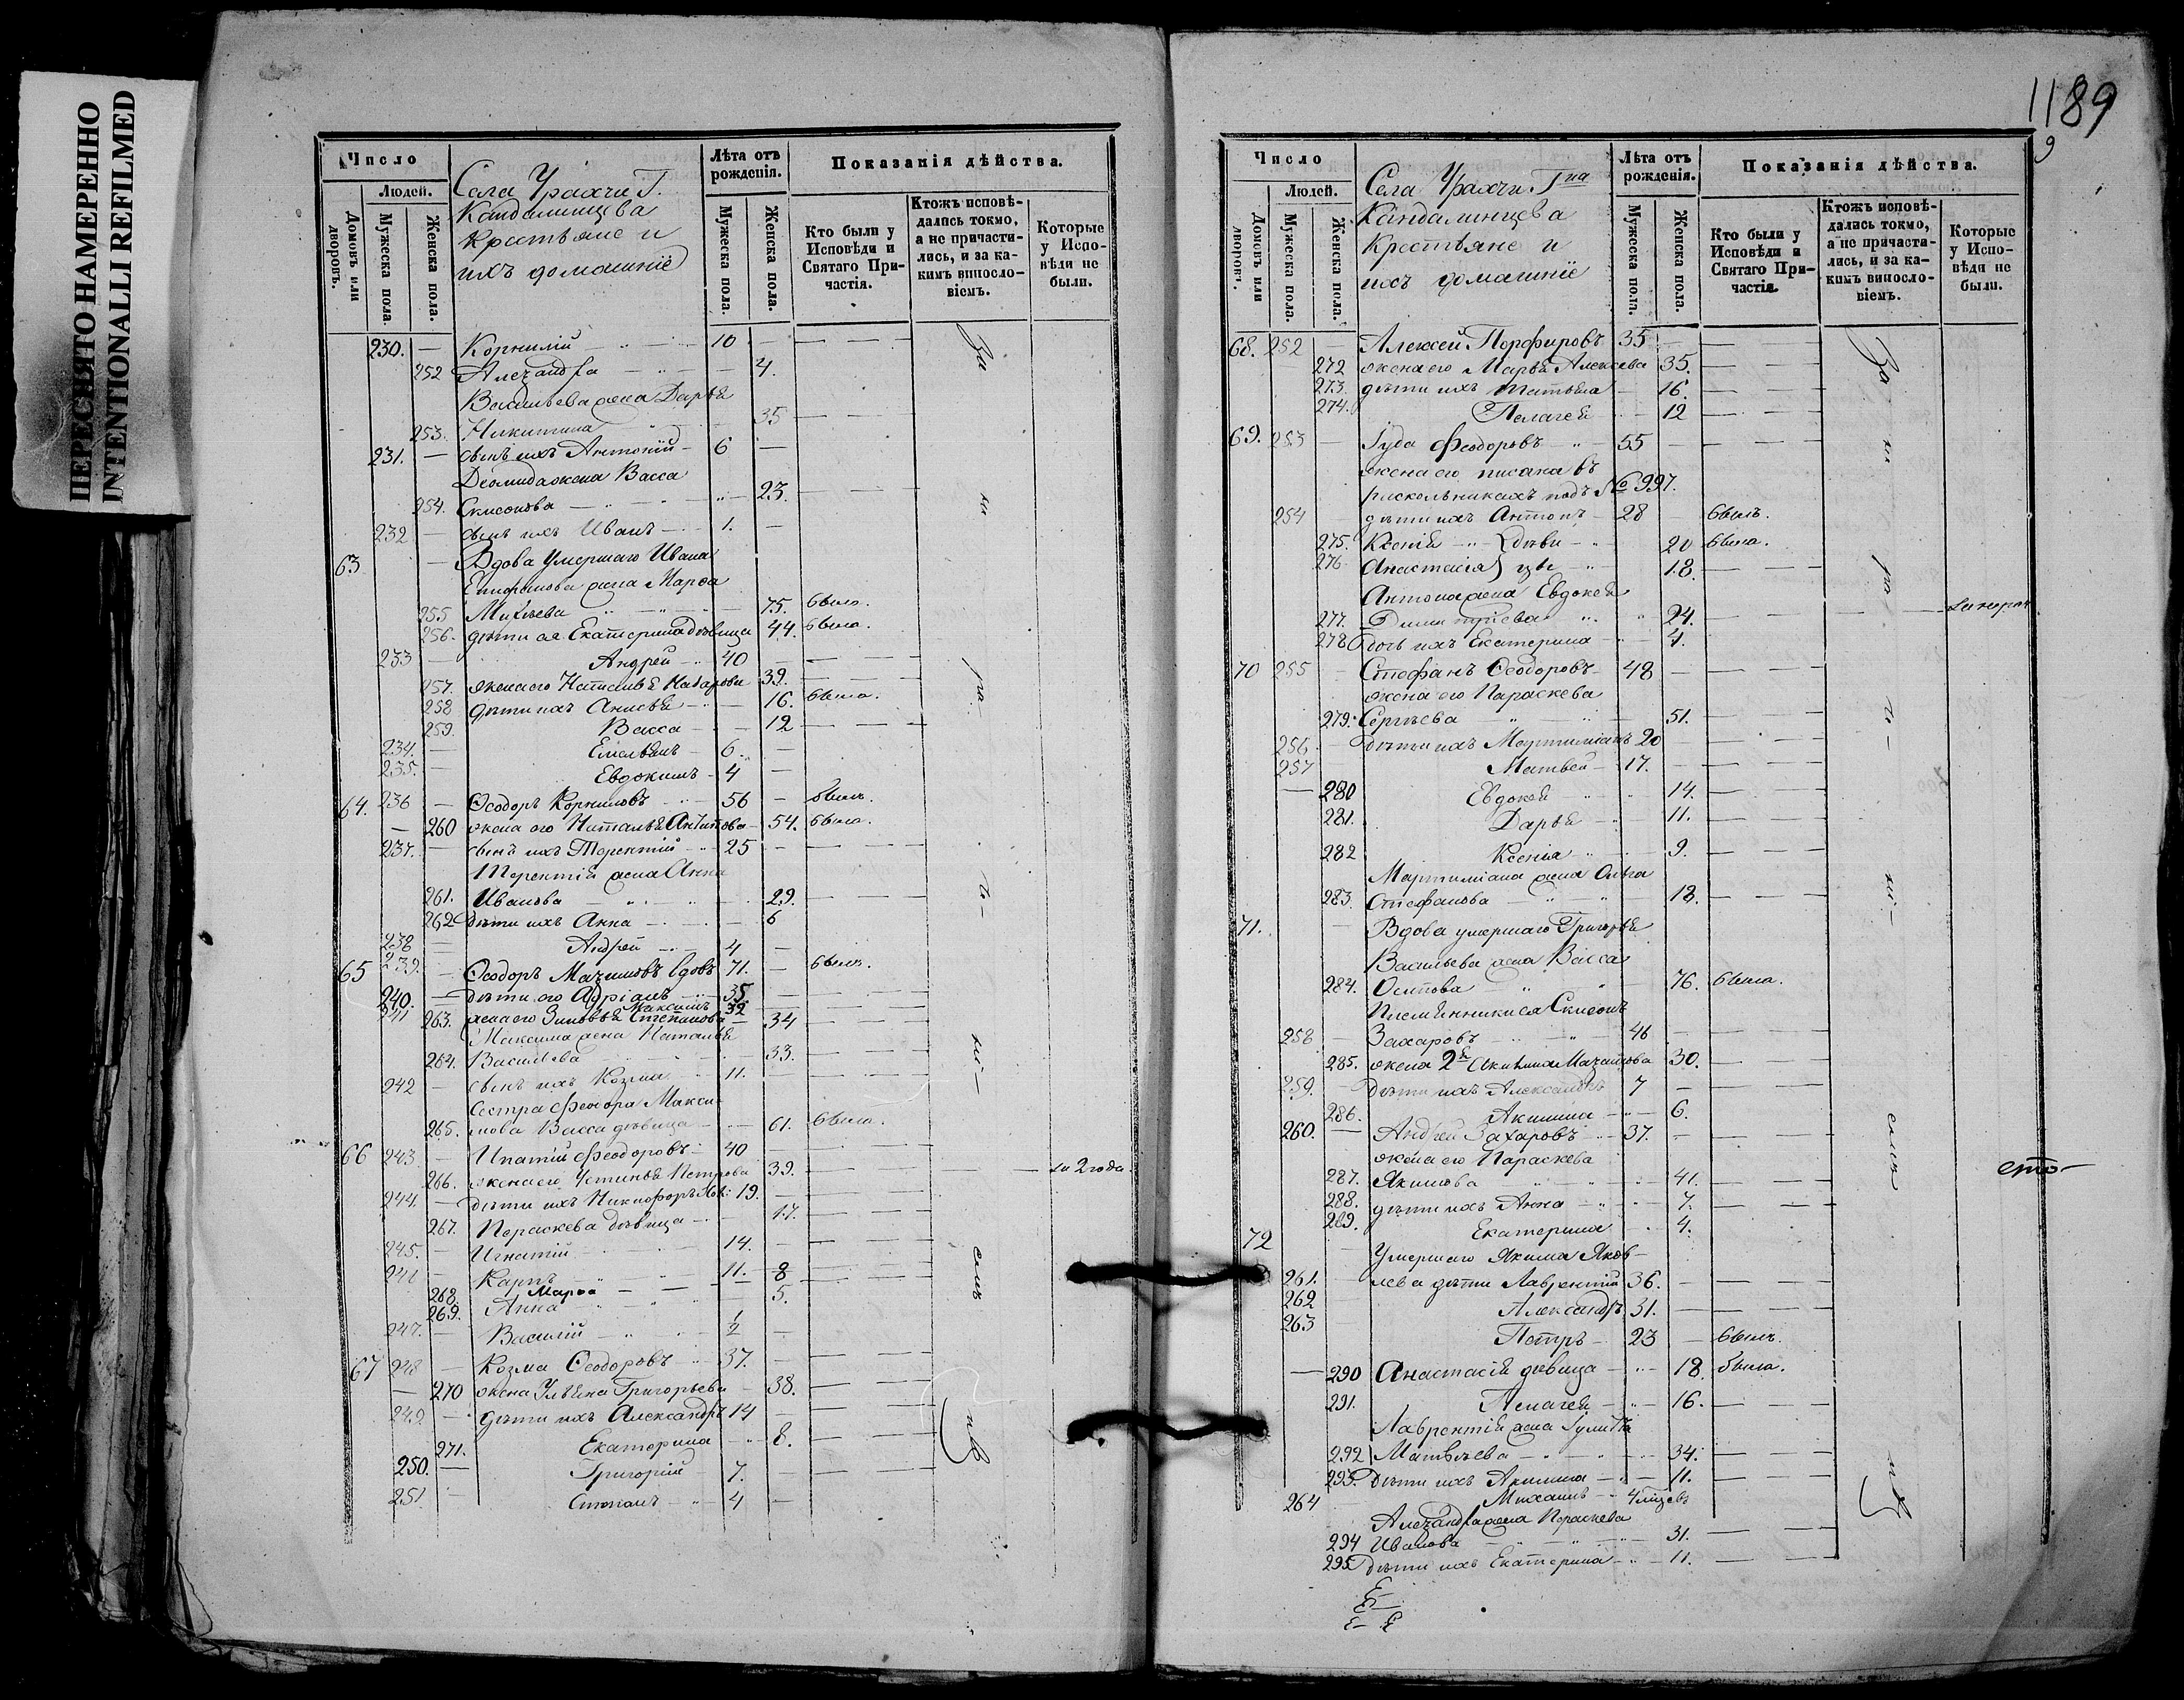 ПЕРЕСНЯТО НАМЕРЕННО
INTENTIONALLI REFILMED
1189
9
Число
Людей.
Домовъ или дворовъ.
Мужеска пола.
Женска пола.
Села Урахчи Г.
Кандалинцева
крестьяне и
ихъ домашніе
Лѣта отъ рожденія.
Мужеска пола.
Женска пола.
Показанія дѣйства.
Кто были у Исповѣди и Святаго Причастія.
Ктожъ исповѣдались токмо, а не причастились, и за какимъ винословіемъ.
Которые у Исповѣди не были.
230. — Корнилій 10 —
252 Александра — 4.
Васильева жена Дарья
253. Никитина 35
231. — сынъ ихъ Антоній 6 —
Деомида жена Васса
254. 23.
232 — сынъ ихъ Иванъ 1. —
63 — Вдова умершаго Ивана
жена Марѳа
255 75. была.
256. дѣти ея Екатерина дѣвица 44. была.
233 — Андрей 40
257. жена его Наталья Назарова 39.
258 дѣти ихъ Анисья 16. была.
259. Васса 12
234. — Емельянъ 6. —
235. — Евдокимъ 4 —
64. 236 — Ѳеодоръ Корниловъ 56 — былъ.
— 260 жена его Наталья Антипова 54. была.
237. — сынъ ихъ Терентій 25 —
Терентія жена Анна
261. Иванова 29.
262 дѣти ихъ Анна 6
238 — Андрей 4 —
65 239. — Ѳеодоръ Максимовъ вдовъ 71. — былъ.
240. — дѣти его Адріанъ 35 —
241 Максимъ 32
263. жена его Зиновья Степанова 34
Максима жена Наталья
264. Васильева 33.
242 — сынъ ихъ Козма 11.
Сестра Феодора Макси-
265. мова Васса дѣвица 61. была.
66 243 — Ипатій Феодоровъ 40
266. жена его Устинья Петрова 39. за 2 года
244. — дѣти ихъ Никифоръ 19. —
267. Параскева дѣвица 17.
245. — Игнатій 14. —
246 — Карпъ 11. —
268. Марѳа 8
269. Анна 5.
247. — Василій 1/2 —
67 248 — Козма Ѳеодоровъ 37. —
— 270 жена Ульяна Григорьева 38.
249. — дѣти ихъ Александръ 14 —
271. Екатерина 8.
250. — Григорій 7. —
251. — Степанъ 4 —
За
не
ра-
че-
ні-
емъ
Число
Людей.
Домовъ или дворовъ.
Мужеска пола.
Женска пола.
Села Урахчи Г на
Кандалинцева
крестьяне и
ихъ домашніе
Лѣта отъ рожденія.
Мужеска пола.
Женска пола.
Показанія дѣйства.
Кто были у Исповѣди и Святаго Причастія.
Ктожъ исповѣдались токмо, а не причастились, и за какимъ винословіемъ.
Которые у Исповѣди не были.
68. 252 — Алексей Порфировъ 35
272 жена его Марья Алексева 35.
273. дѣти ихъ Татьяна 16.
274. Пелагея 12
69. 253 — Іуда Феодоровъ 55 —
жена его писана въ
раскольникахъ подъ № 997.
254 — дѣти ихъ Антонъ 28 — былъ.
275. Ксенія дѣви- 20 была.
276 Анастасія цы 18.
Антона жена Евдокея
277. Димитріева 24.
278 дочь ихъ Екатерина 4.
70 255 — Стефанъ Ѳеодоровъ 48 —
жена его Параскева
279. Сергѣева 51.
256 — дѣти ихъ Мартиміанъ 20
257 Матвей 17.
— 280 Евдокея 14.
281. Дарья 11.
282 Ксенія 9.
Мартиміана жена Ольга
283. Стефанова 18.
71. — Вдова умершаго Григорья
Васильева жена Васса
284. Осипова 76. была.
258 — Захаровъ 46 —
285. жена 2я 30.
259. — дѣти ихъ Александръ 7 —
286. Акилина 6.
260. — Андрей Захаровъ 37. —
жена его Параскева
287. Якимова 41.
288. дѣти ихъ Анна 7.
289. Екатерина 4.
72 — Умершаго Якима Яков-
261. — лева дѣти Лаврентій 36. —
262 Александръ 31. —
263 Петръ 23 — былъ.
— 290 Анастасія дѣвица 18. была.
291. Пелагея 16.
Лаврентія жена Іулитта
292 Матвѣева 34.
293. дѣти ихъ Акилина 11.
264 Михаилъ 4
Александра жена Параскева
294 Иванова 31.
295 дѣти ихъ Екатерина 11.
За
не
ра
че-
ні-
емъ